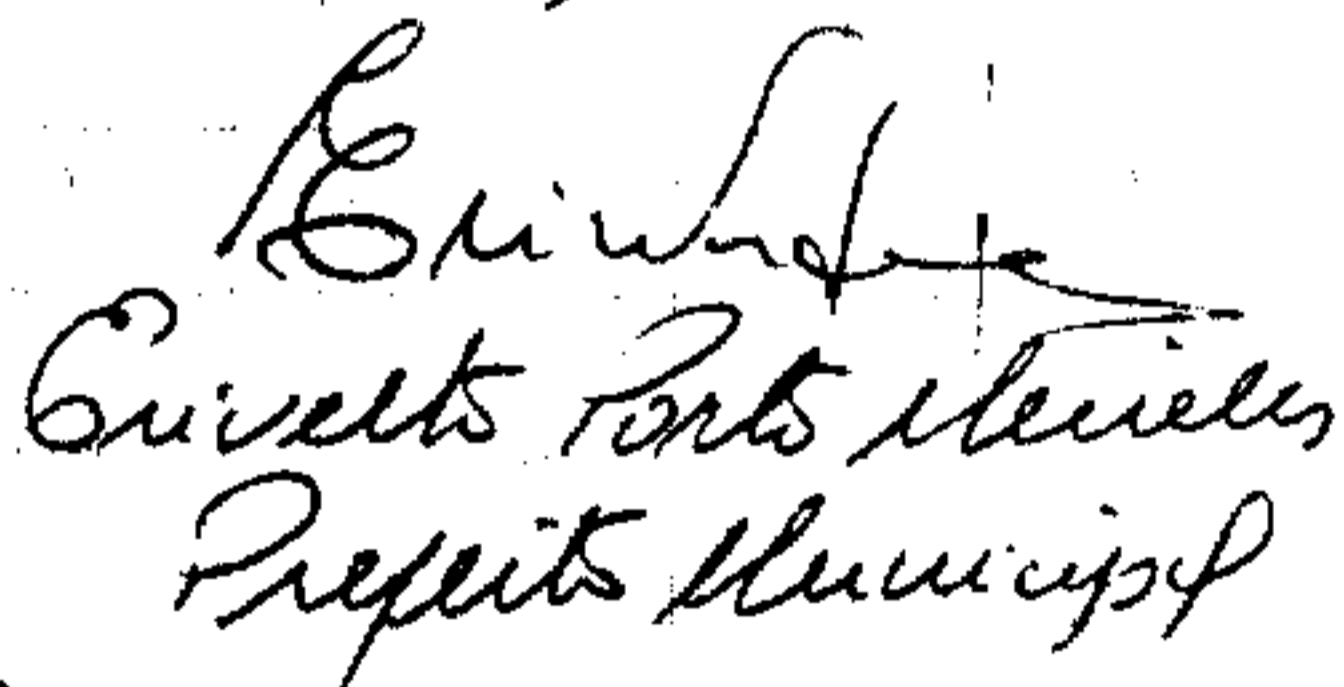 Erivelto Porto Meireles
Prefeito Municipal